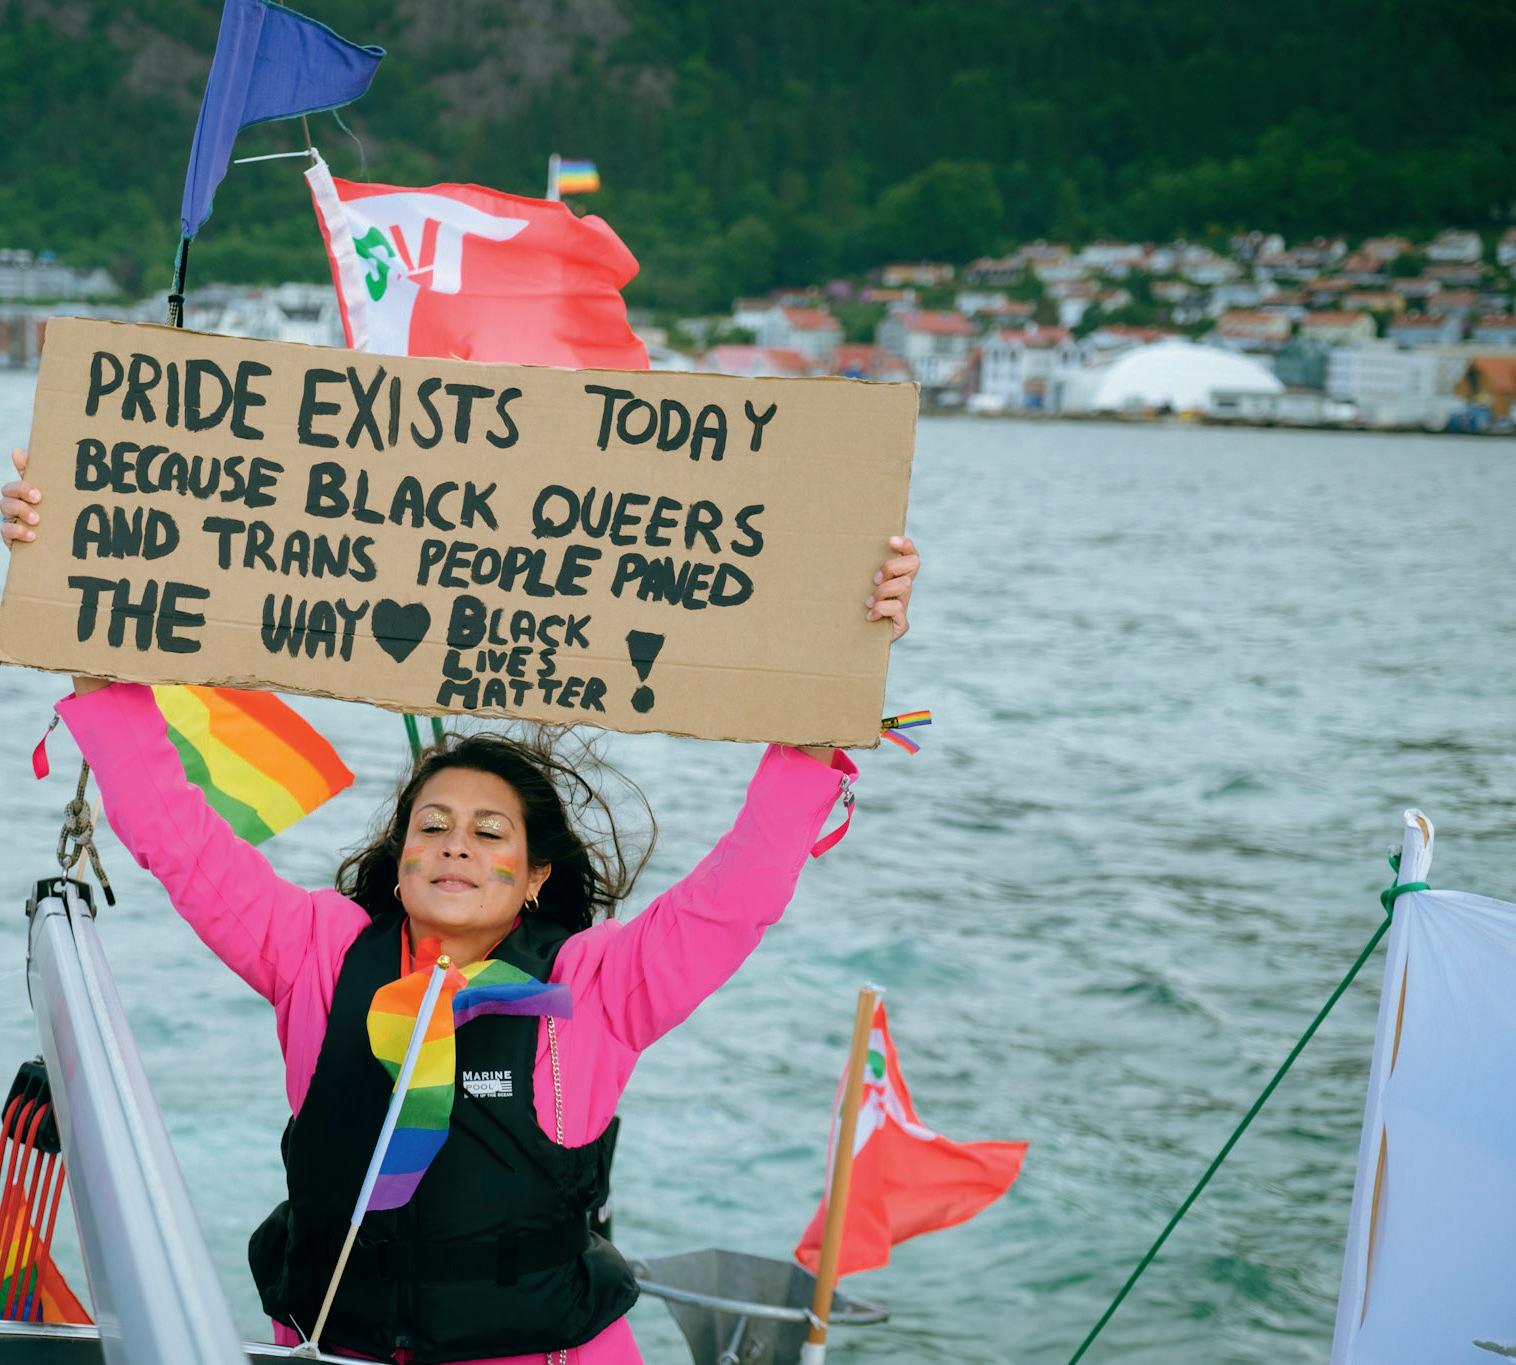 SV
PRIDE EXISTS TODAY
BECAUSE BLACK QUEERS
AND TRANS PEOPLE PAVED
THE WAY♥ BLACK
LIVES
MATTER !
MARINE
POOL
OF THE OCEAN